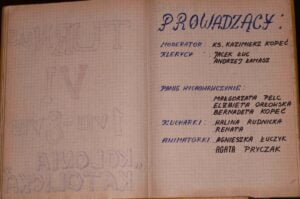 PROWADZĄCY:
MODERATOR: KS. KAZIMIERZ KOPEĆ
KLERYCY: JACEK ŁUC
ANDRZEJ ŁAMASZ
PANIE WYCHOWAWCZYNIE:
MAŁGORZATA PELC
ELŻBIETA ORŁOWSKA
BERNADETA KOPEĆ
KUCHARKI: HALINA RUDNICKA
RENATA
ANIMATORKI: AGNIESZKA ŁUCZYK
AGATA PRYCZAK